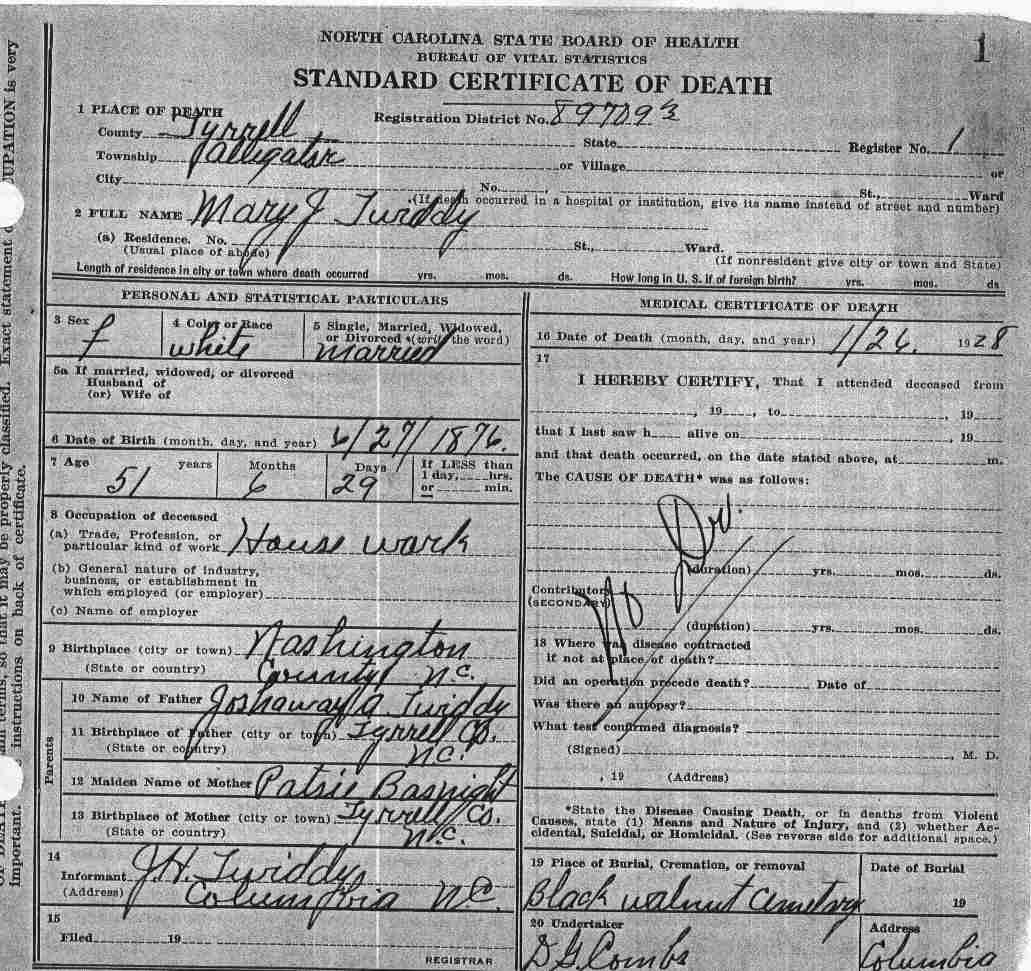 NORTH CAROLINA STATE BOARD OF HEALTH
BUREAU OF VITAL STATISTICS
STANDARD CERTIFICATE OF DEATH
1
1 PLACE OF DEATH
Registration District No. 897093
County Tyrrell State Register No. 1
Township Alligator or Village or
City No. St., Ward
(If death occurred in a hospital or institution, give its name instead of street and number)
2 FULL NAME Mary J Twiddy
(a) Residence. No. St., Ward.
(Usual place of abode) (If nonresident give city or town and State)
Length of residence in city or town where death occurred yrs. mos. ds. How long in U. S. if of foreign birth? yrs. mos. ds
PERSONAL AND STATISTICAL PARTICULARS
3 Sex 4 Color or Race 5 Single, Married, Widowed,
or Divorced (write the word)
f white married
5a If married, widowed, or divorced
Husband of
(or) Wife of
6 Date of Birth (month, day, and year) 6/27/1876.
7 Age years Months Days If LESS than
1 day, hrs.
or min.
51 6 29
8 Occupation of deceased
(a) Trade, Profession, or
particular kind of work House work
(b) General nature of industry,
business, or establishment in
which employed (or employer)
(c) Name of employer
9 Birthplace (city or town) Washington
(State or country) County N.C.
Parents
10 Name of Father Joshaway A Twiddy
11 Birthplace of Father (city or town) Tyrrell Co.
(State or country) N.C.
12 Maiden Name of Mother Patsie Basnight
13 Birthplace of Mother (city or town) Tyrrell Co.
(State or country) N.C.
14
Informant J.H. Twiddy
(Address) Columbia N.C.
15
Filed 19
REGISTRAR
MEDICAL CERTIFICATE OF DEATH
16 Date of Death (month, day, and year) 1/26. 1928
17
I HEREBY CERTIFY, That I attended deceased from
, 19 , to , 19
that I last saw h alive on , 19
and that death occurred, on the date stated above, at m.
The CAUSE OF DEATH* was as follows:
No Dr.
(duration) yrs. mos. ds.
Contributory
(SECONDARY)
(duration) yrs. mos. ds.
18 Where was disease contracted
if not at place of death?
Did an operation precede death? Date of
Was there an autopsy?
What test confirmed diagnosis?
(Signed) , M. D.
, 19 (Address)
*State the Disease Causing Death, or in deaths from Violent
Causes, state (1) Means and Nature of Injury, and (2) whether Ac-
cidental, Suicidal, or Homicidal. (See reverse side for additional space.)
19 Place of Burial, Cremation, or removal Date of Burial
Black walnut Cemetry 19
20 Undertaker Address
D G Combs Columbia
UPATION is very
Exact statement
properly classified.
instructions on back of certificate.
important.